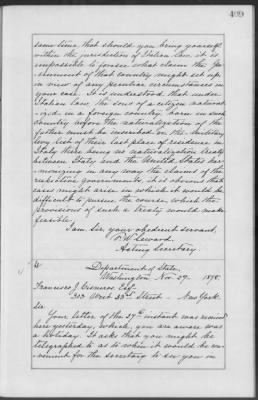 409
same time, that should you bring yourself
within the jurisdiction of Italian law, it is
impossible to foresee what claim the Gov-
ernment of that country might set up
in view of any peculiar circumstances in
your case. It is understood that under
Italian law the sons of a citizen natural-
ized in a foreign country, born in such
country before the naturalization of the
father must be inscribed on the military
levy list of their last place of residence in
Italy there being no naturalization treaty
between Italy and the United States har-
monizing in any way the claims of the
respective governments, it is obvious that
cases might arise in which it would be
difficult to pursue the course which the
provisions of such a treaty would make
feasible.
I am Sir, your obedient servant,
F. W. Seward,
Acting Secretary.
Department of State,
Washington Nov. 29, 1878.
Francisco J. Cisneros Esq.
303 West 33rd Street - New York.
Sir
Your letter of the 27th instant was received
here yesterday, which, you are aware was
a holiday. It asks that you might be
telegraphed to as to when it would be con-
venient for the secretary to see you on